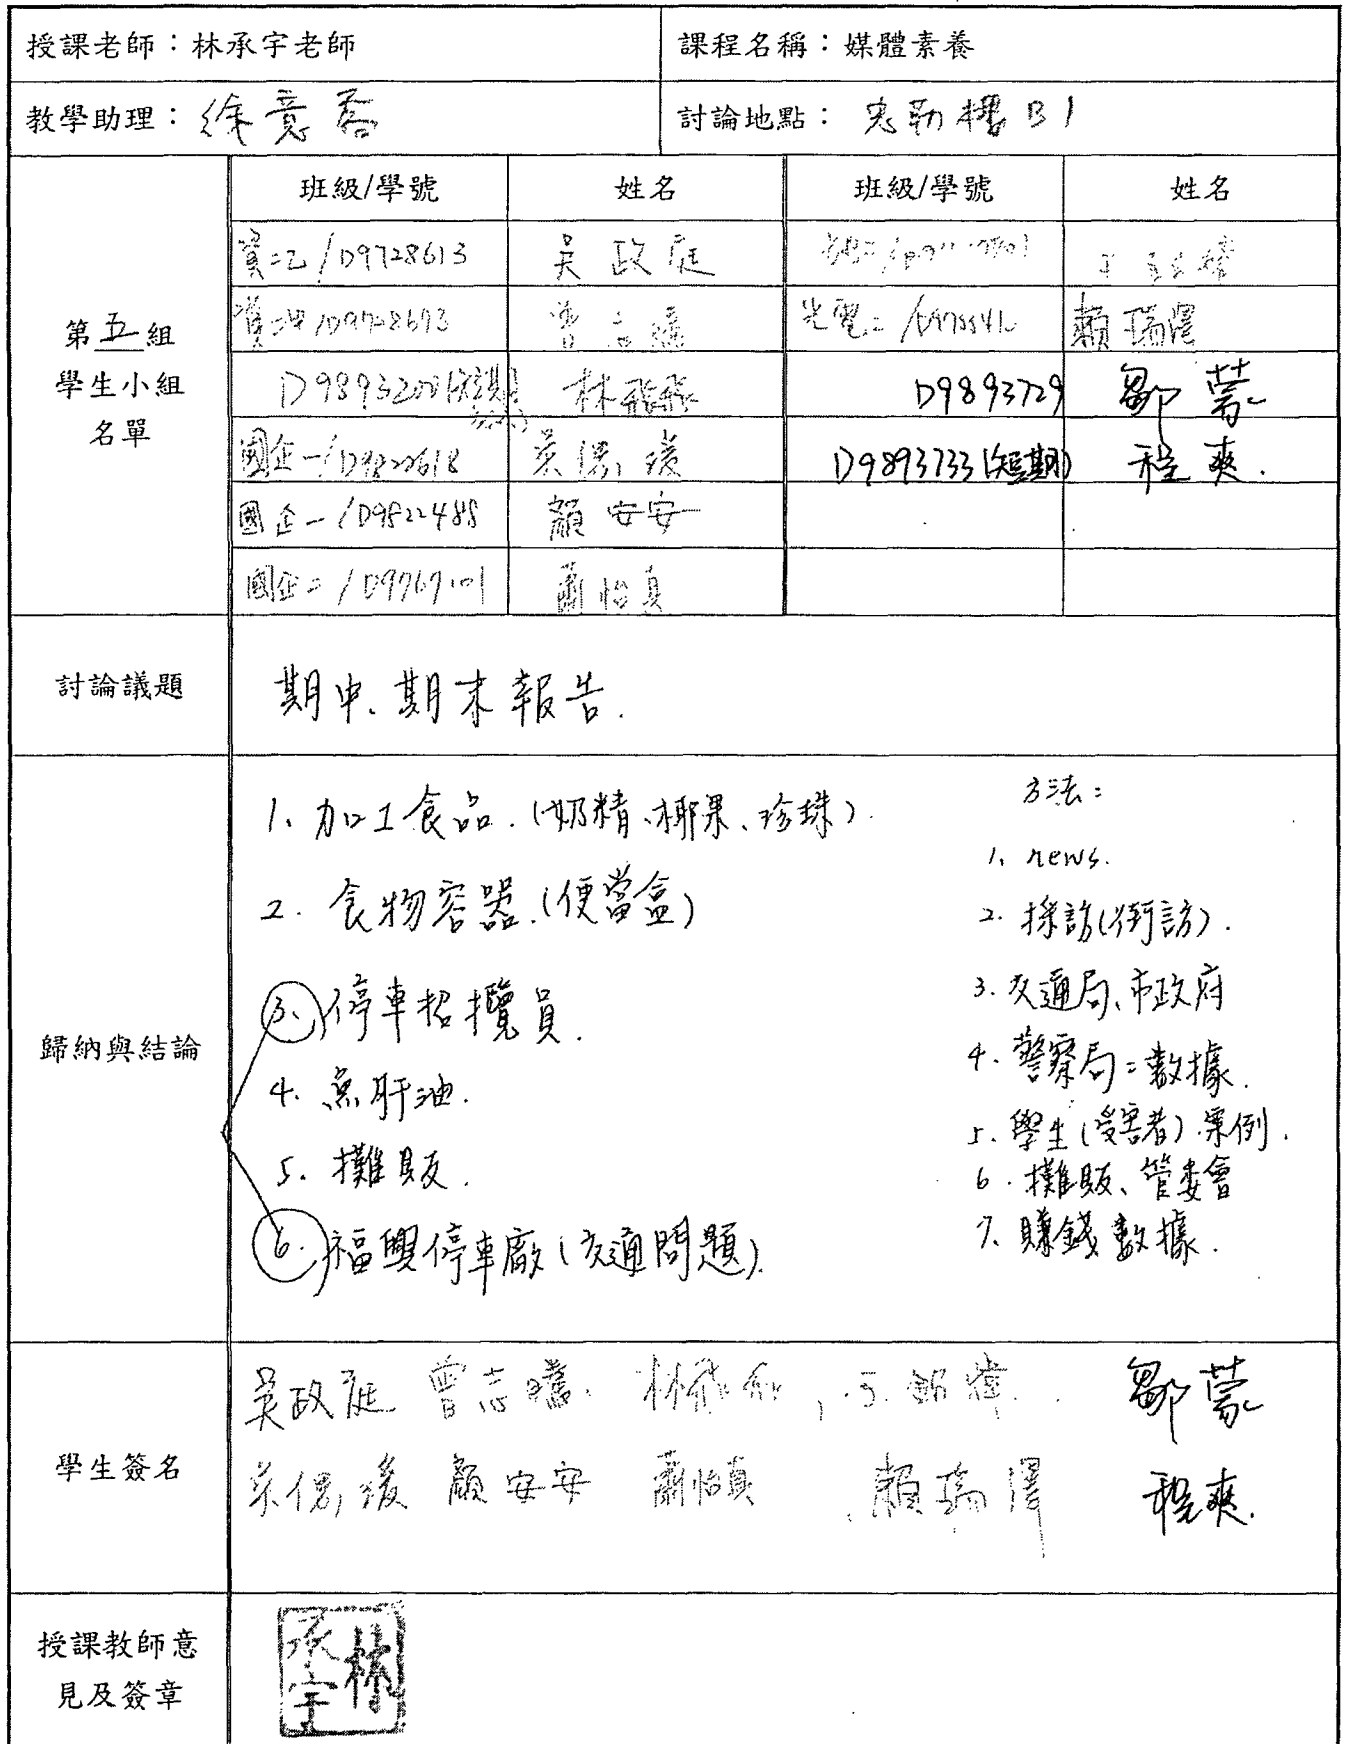 授課老師：林承宇老師 課程名稱：媒體素養
教學助理：徐意喬 討論地點：忠勤樓B1
班級/學號 姓名 班級/學號 姓名
資二乙/D9728613 吳政庭
曾志 光電二/ 賴瑞澤
第五組
學生小組
名單
林 D9893729 鄒蒙
國企一/ 吳 D9893733(短期) 程爽.
國企一/D9822488 顏安安
國企二/D9767101 蕭怡真
討論議題 期中、期末報告.
歸納與結論
1、加工食品.(奶精、椰果、珍珠).
2. 食物容器.(便當盒)
3. 停車招攬員.
4. 魚肝油.
5. 攤販.
6. 福興停車廠(交通問題).
方法：
1、news.
2. 採訪(街訪).
3. 交通局、市政府
4. 警察局：數據.
5. 學生(受害者).案例.
6. 攤販、管委會
7. 賺錢數據.
學生簽名
吳政庭 曾志 林 鄒蒙
顏安安 蕭怡真 賴瑞澤 程爽.
授課教師意
見及簽章
林承宇